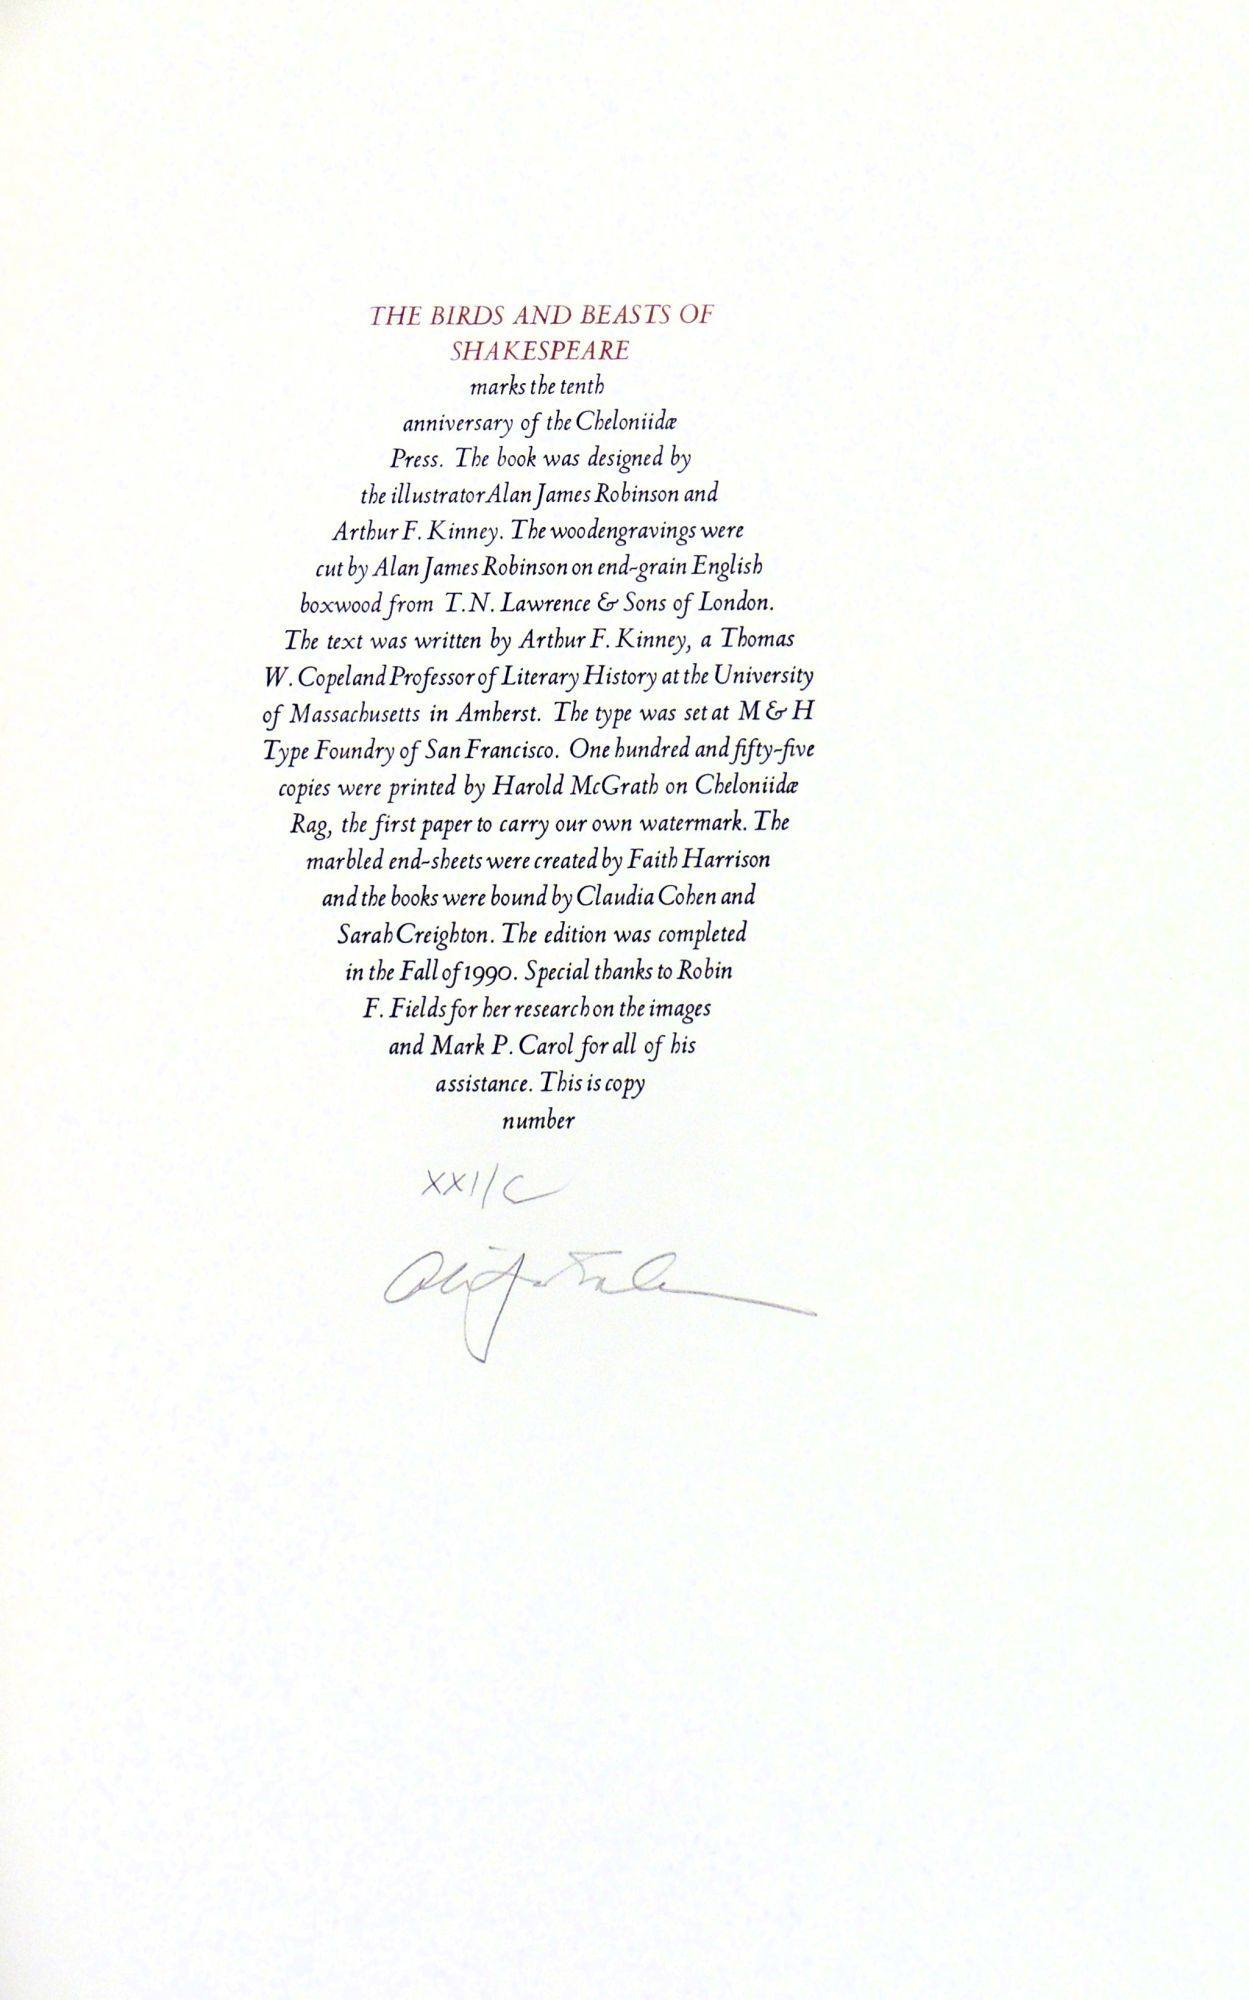 THE BIRDS AND BEASTS OF
SHAKESPEARE
marks the tenth
anniversary of the Cheloniidæ
Press. The book was designed by
the illustrator Alan James Robinson and
Arthur F. Kinney. The woodengravings were
cut by Alan James Robinson on end-grain English
boxwood from T.N. Lawrence & Sons of London.
The text was written by Arthur F. Kinney, a Thomas
W. Copeland Professor of Literary History at the University
of Massachusetts in Amherst. The type was set at M & H
Type Foundry of San Francisco. One hundred and fifty-five
copies were printed by Harold McGrath on Cheloniidæ
Rag, the first paper to carry our own watermark. The
marbled end-sheets were created by Faith Harrison
and the books were bound by Claudia Cohen and
Sarah Creighton. The edition was completed
in the Fall of 1990. Special thanks to Robin
F. Fields for her research on the images
and Mark P. Carol for all of his
assistance. This is copy
number
XXI/C